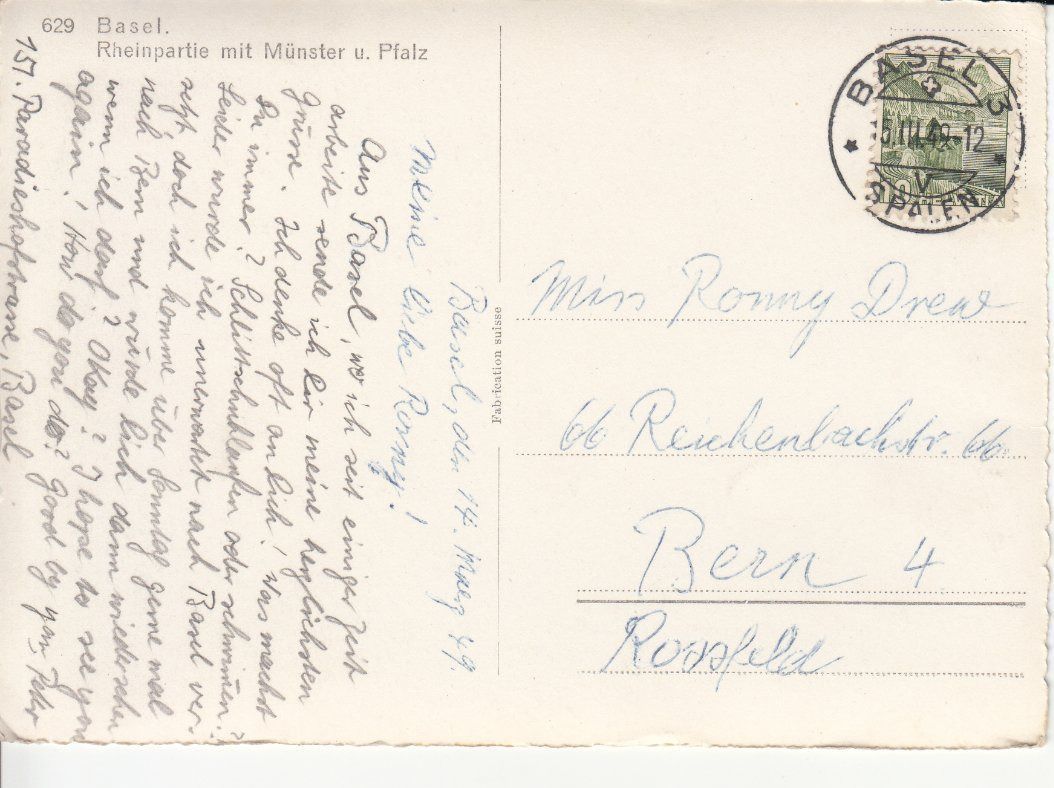 629 Basel.
Rheinpartie mit Münster u. Pfalz
Basel, den 14. März 49
Meine liebe Ronny!
Aus Basel, wo ich seit einiger Zeit
arbeite sende ich Dir meine herzlichsten
Grüsse. Ich denke oft an Dich! Was machst
Du immer? Schlittschuhlaufen oder schwimen?
Leider wurde ich unerwartet nach Basel ver-
setzt doch ich komme über Sonntag gerne mal
nach Bern und würde Dich dann wiedersehen
wenn ich darf? Okay? I hope to see you
again! How do you do? Good by your Peter
151. Paradieshofstrasse, Basel
Fabrication suisse
BASEL 3
15.III.49-12
V
SPALEN
Miss Ronny Drew
66 Reichenbachstr. 66
Bern 4
Rossfeld